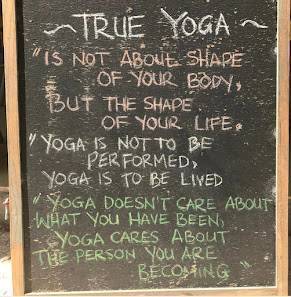 ~ TRUE YOGA ~
"IS NOT ABOUT SHAPE
OF YOUR BODY,
BUT THE SHAPE
OF YOUR LIFE.
"YOGA IS NOT TO BE
PERFORMED,
YOGA IS TO BE LIVED
"YOGA DOESN'T CARE ABOUT
WHAT YOU HAVE BEEN,
YOGA CARES ABOUT
THE PERSON YOU ARE
BECOMING"